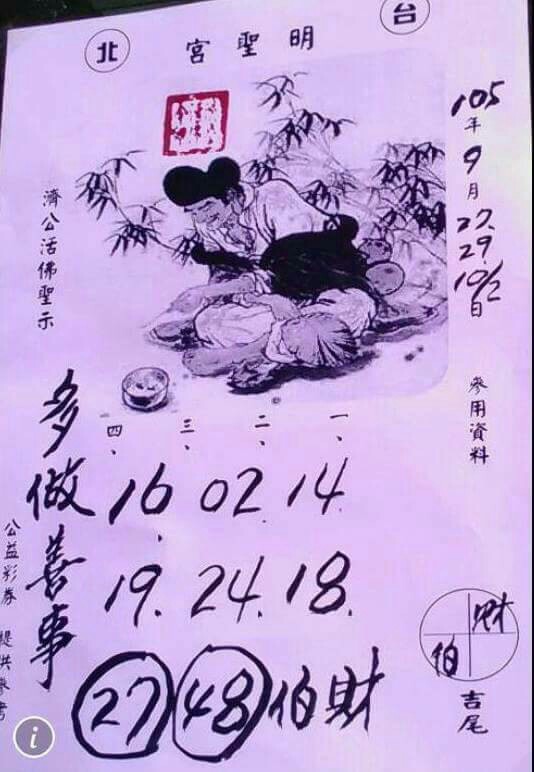 台北
明聖宮
105年9月27.29.10/2日
參用資料
濟公活佛聖示
一、二、三、四、
14 02 16
18. 24. 19.
多做善事
27 48 伯財
財伯
吉尾
公益彩券 提供參考